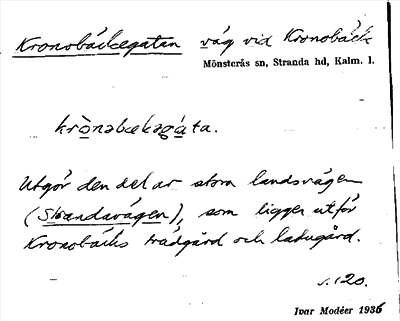 Kronobäckegatan väg vid Kronobäck
Mönsterås sn, Stranda hd, Kalm. l.
krònəbækəgàta.
Utgör den del av stora landsvägen
(Strandavägen), som ligger utför
Kronobäcks trädgård och ladugård.
s. 120.
Ivar Modéer 1936